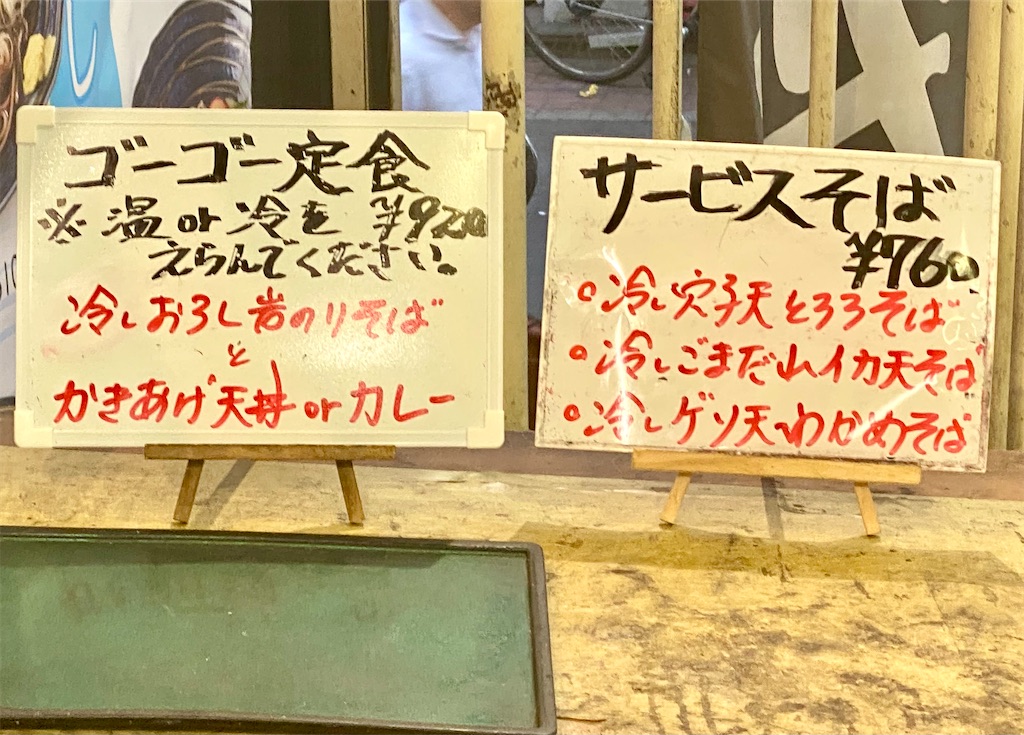 ゴーゴー定食
※温or冷を ¥920
えらんでください。
冷しおろし岩のりそば
と
かきあげ天丼orカレー
サービスそば
¥760
○冷し穴子天とろろそば
○冷しごまだれイカ天そば
○冷しゲソ天わかめそば